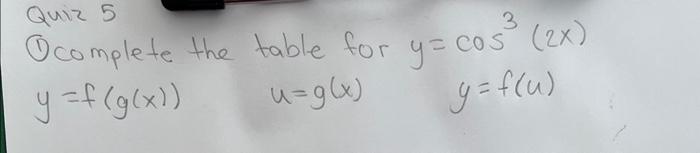 Quiz 5
① complete the table for y = cos³ (2x)
y = f(g(x)) u = g(x) y = f(u)